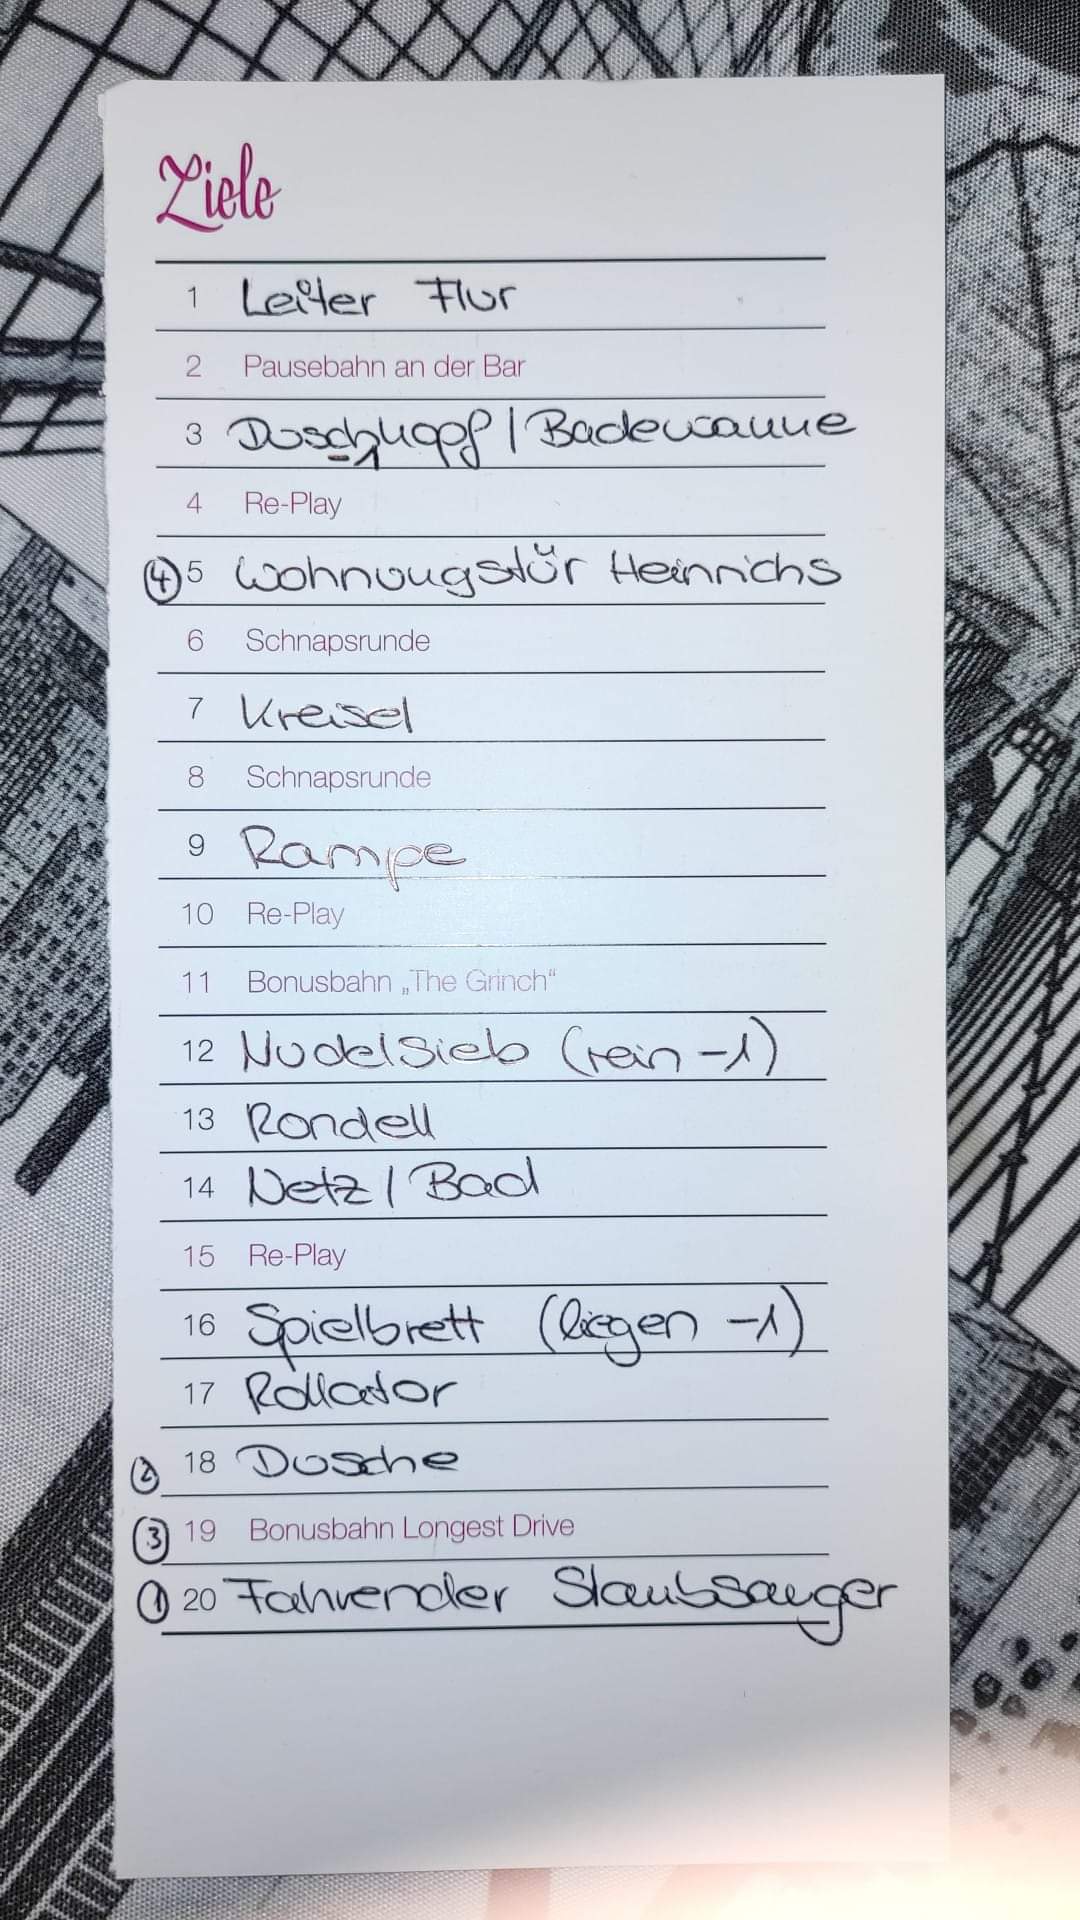 Ziele
1 Leiter Flur
2 Pausebahn an der Bar
3 Duschkopf / Badewanne
-1
4 Re-Play
④ 5 Wohnungstür Heinrichs
6 Schnapsrunde
7 Kreisel
8 Schnapsrunde
9 Rampe
10 Re-Play
11 Bonusbahn „The Grinch“
12 Nudelsieb (rein -1)
13 Rondell
14 Netz / Bad
15 Re-Play
16 Spielbrett (liegen -1)
17 Rollator
② 18 Dusche
③ 19 Bonusbahn Longest Drive
① 20 Fahrender Staubsauger